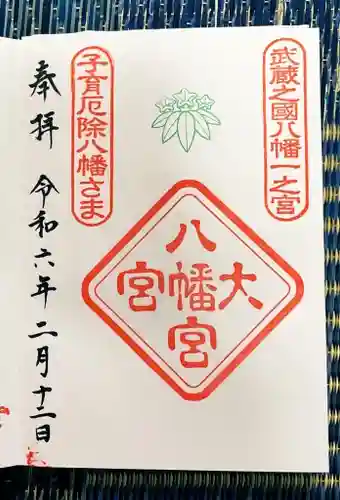 武蔵之國八幡一之宮
八幡宮
大宮
子育厄除八幡さま
奉拝
令和六年二月十二日